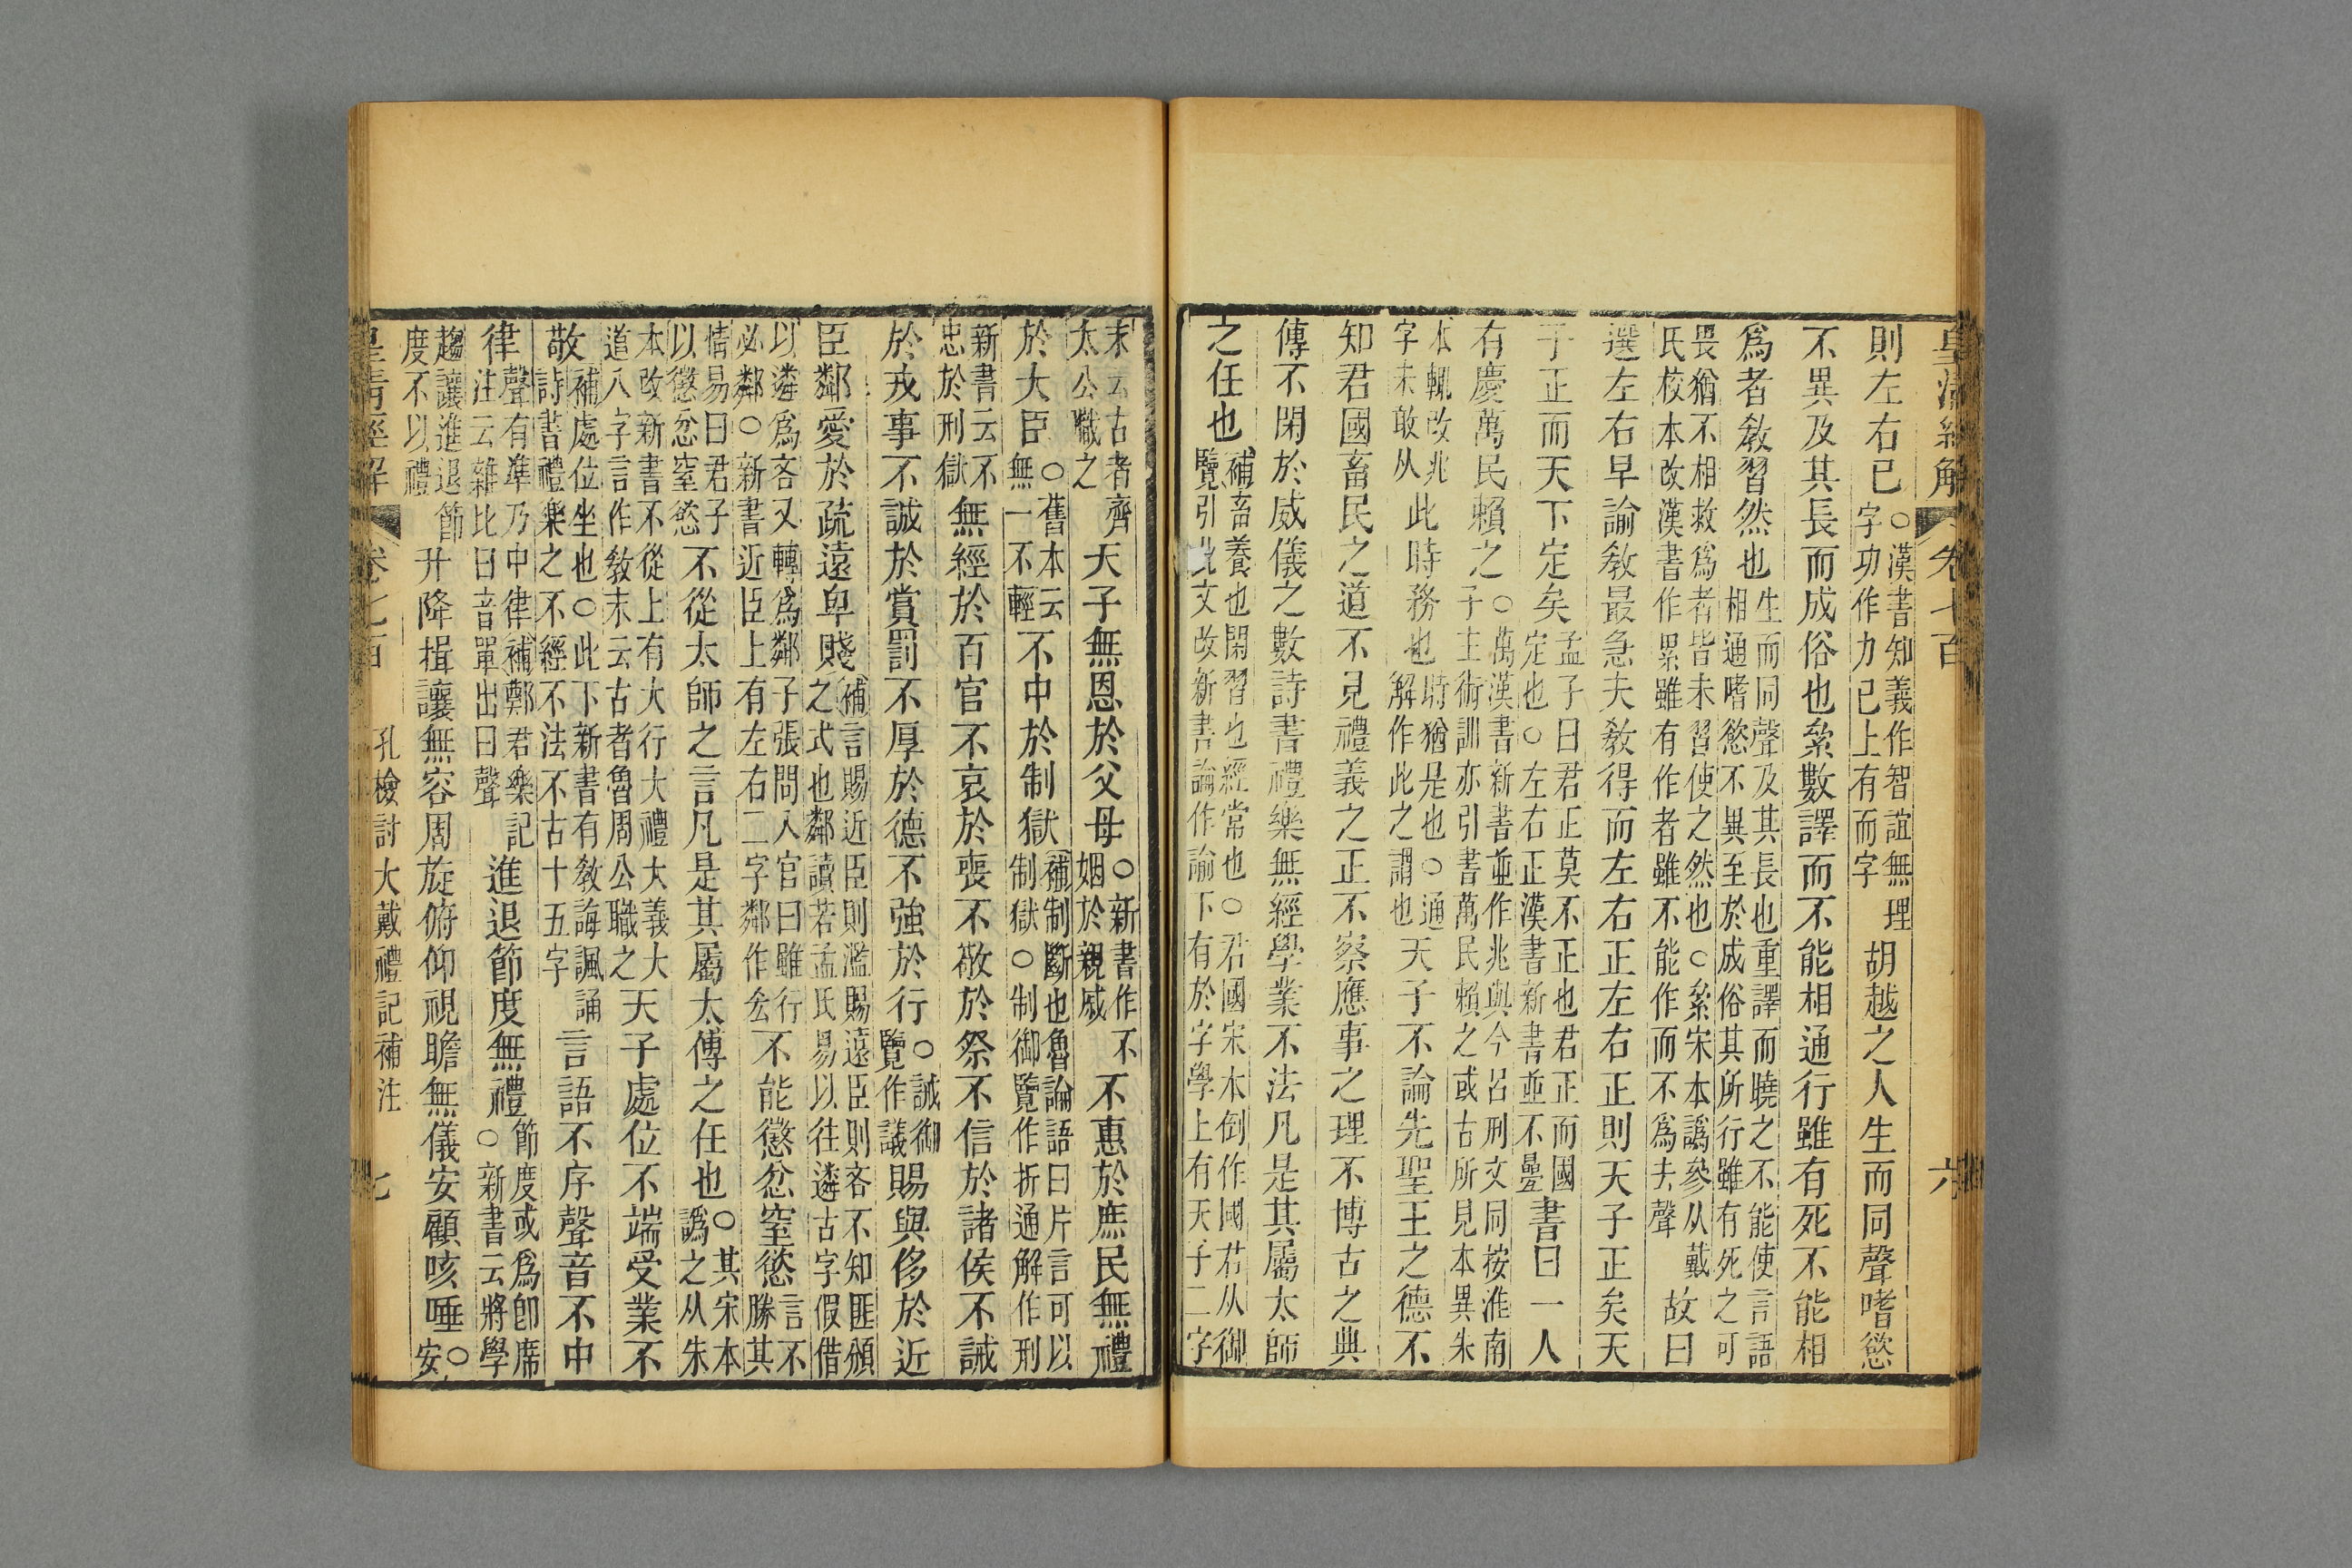 皇清經解 卷七百 六
則左右已○漢書知義作智誼無理字功作力已上有而字胡越之人生而同聲嗜慾
不異及其長而成俗也絫數譯而不能相通行雖有死不能相
爲者敎習然也生而同聲及其長也重譯而曉之不能使言語相通嗜慾不異至於成俗其所行雖有死之可
畏猶不相救爲者皆未習使之然也○絫宋本譌參从戴氏校本改漢書作累雖有作者雖不能作而不爲去聲故曰
選左右早諭敎最急夫敎得而左右正左右正則天子正矣天
子正而天下定矣孟子曰君正莫不正也君正而國定也○左右正漢書新書並不疊書曰一人
有慶萬民賴之○萬漢書新書並作兆與今呂刑文同按淮南子主術訓亦引書萬民賴之或古所見本異朱
本輒改兆字未敢从此時務也時猶是也○通解作此之謂也天子不論先聖王之德不
知君國畜民之道不見禮義之正不察應事之理不博古之典
傳不閑於威儀之數詩書禮樂無經學業不法凡是其屬太師
之任也補畜養也閑習也經常也○君國宋本倒作國君从御覽引此文改新書論作諭下有於字學上有天子二字
末云古者齊太公職之天子無恩於父母○新書作不姻於親戚不惠於庶民無禮
於大臣○舊本云無一不輕不中於制獄補制斷也魯論語曰片言可以制獄○制御覽作折通解作刑
新書云不忠於刑獄無經於百官不哀於喪不敬於祭不信於諸侯不誡
於戎事不誠於賞罰不厚於德不強於行○誡御覽作議賜與侈於近
臣鄰愛於疏遠卑賤補言賜近臣則濫賜遠臣則吝不知匪頒之式也鄰讀若孟氏易以往遴古字假借
以遴爲吝又轉爲鄰子張問入官曰雖行必鄰○新書近臣上有左右二字鄰作㕕不能懲忿窒慾言不勝其
情易曰君子以懲忿窒慾不從太師之言凡是其屬太傅之任也○其宋本譌之从朱
本改新書不從上有大行大禮大義大道八字言作敎末云古者魯周公職之天子處位不端受業不
敬補處位坐也○此下新書有敎誨諷誦詩書禮樂之不經不法不古十五字言語不序聲音不中
律聲有準乃中律補鄭君樂記注云雜比曰音單出曰聲進退節度無禮節度或爲卽席○新書云將學
趨讓進退節度不以禮升降揖讓無容周旋俯仰視瞻無儀安顧咳唾○安
皇清經解 卷七百 孔檢討大戴禮記補注 七